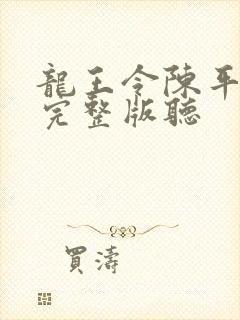 龍王令陳平
完整版聽
買濤